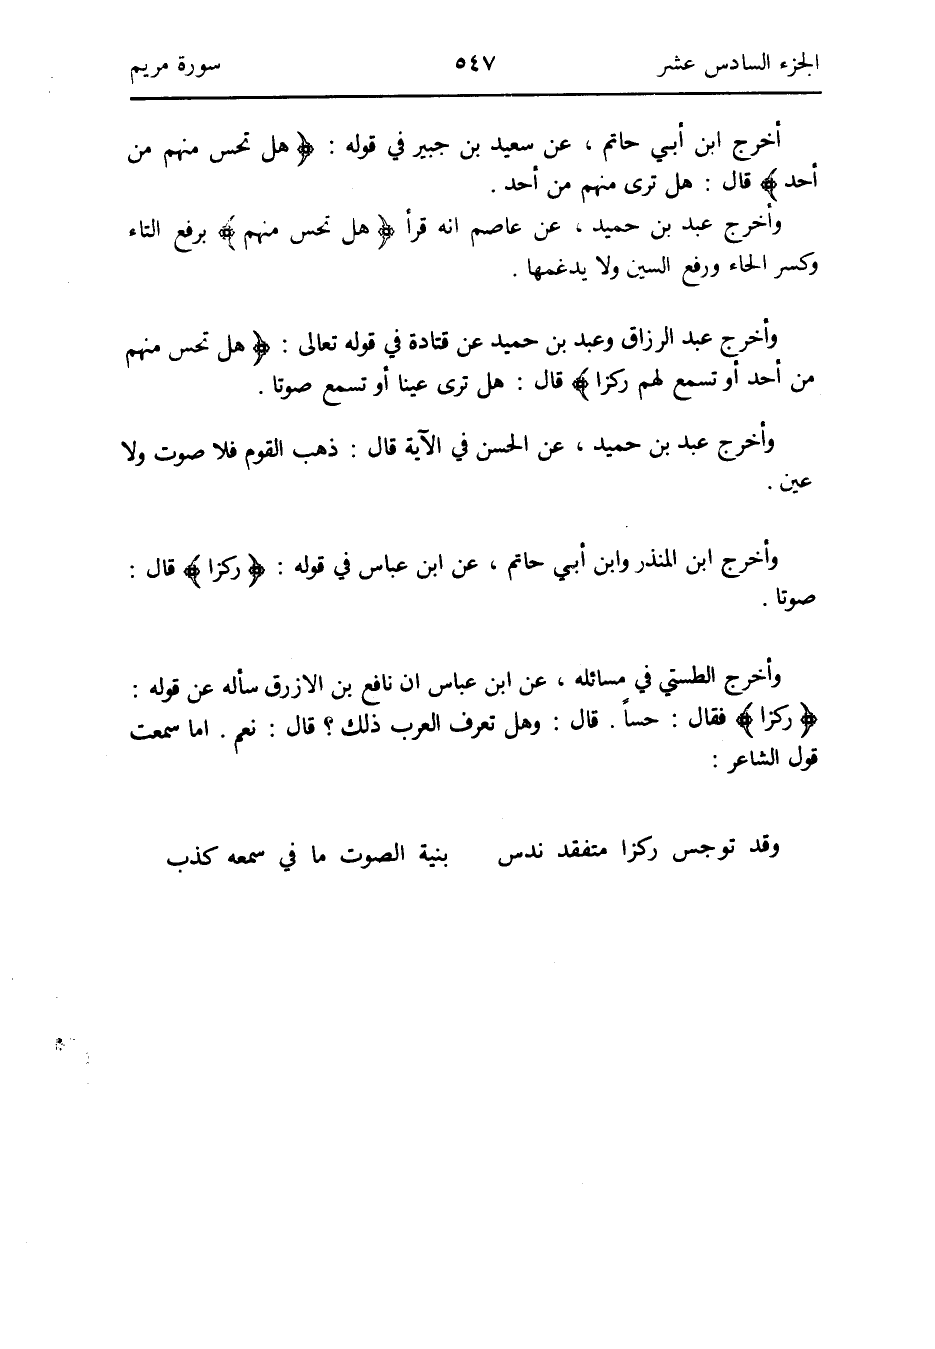 الجزء السادس عشر ٥٤٧ سورة مريم
أخرج ابن أبي حاتم ، عن سعيد بن جبير في قوله : ﴿ هل تحس منهم من
أحد ﴾ قال : هل ترى منهم من أحد .
وأخرج عبد بن حميد ، عن عاصم انه قرأ ﴿ هل تحس منهم ﴾ برفع التاء
وكسر الحاء ورفع السين ولا يدغمها .
وأخرج عبد الرزاق وعبد بن حميد عن قتادة في قوله تعالى : ﴿ هل تحس منهم
من أحد أو تسمع لهم ركزا ﴾ قال : هل ترى عينا أو تسمع صوتا .
وأخرج عبد بن حميد ، عن الحسن في الآية قال : ذهب القوم فلا صوت ولا
عين .
وأخرج ابن المنذر وابن أبي حاتم ، عن ابن عباس في قوله : ﴿ ركزا ﴾ قال :
صوتا .
وأخرج الطستي في مسائله ، عن ابن عباس ان نافع بن الازرق سأله عن قوله :
﴿ ركزا ﴾ فقال : حساً . قال : وهل تعرف العرب ذلك ؟ قال : نعم . اما سمعت
قول الشاعر :
وقد توجس ركزا متفقد ندس بنية الصوت ما في سمعه كذب